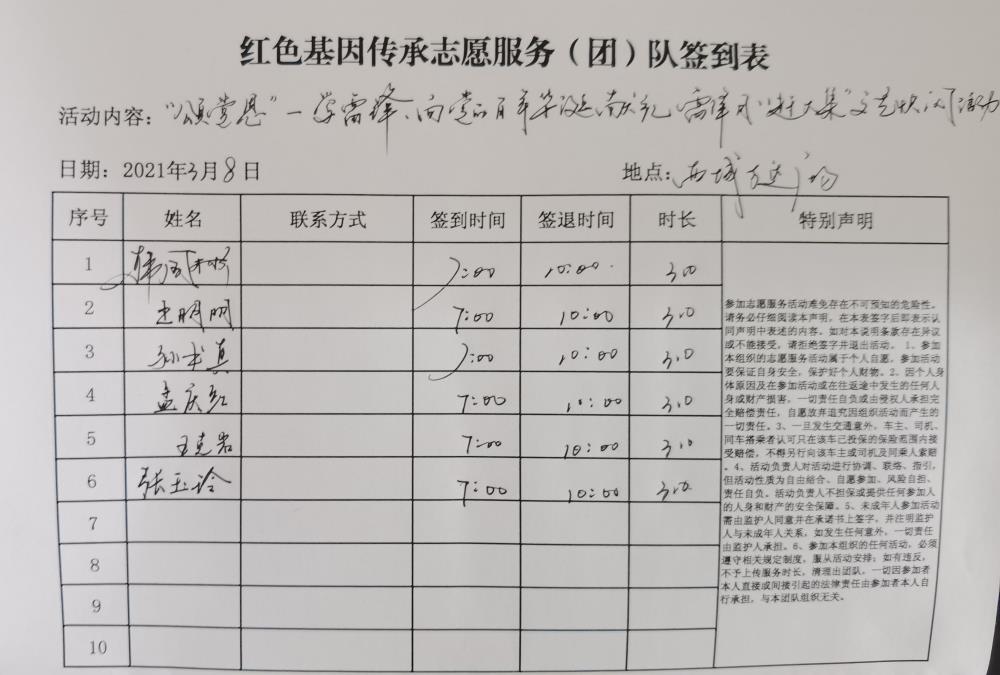 红色基因传承志愿服务（团）队签到表
活动内容：“颂党恩”一学雷锋、向党的百年华诞献礼 雷锋月“赶大集”文艺 活动
日期：2021年3月8日 地点：西城 广场
序号 姓名 联系方式 签到时间 签退时间 时长 特别声明
1 7:00 10:00 3.0
2 明明 7:00 10:00 3.0
3 孙 真 7:00 10:00 3.0
4 孟庆红 7:00 10:00 3.0
5 王克岩 7:00 10:00 3.0
6 张玉玲 7:00 10:00 3.0
7
8
9
10
参加志愿服务活动难免存在不可预知的危险性。
请务必仔细阅读本声明，在本表签字后即表示认
同声明中表述的内容。如对本说明条款存在异议
或不能接受，请拒绝签字并退出活动。 1、参加
本组织的志愿服务活动属于个人自愿，参加活动
要保证自身安全，保护好个人财物。2、因个人身
体原因及在参加活动或在往返途中发生的任何人
身或财产损害，一切责任自负或由侵权人承担完
全赔偿责任，自愿放弃追究因组织活动而产生的
一切责任。3、一旦发生交通意外，车主、司机、
同车搭乘者认可只在该车已投保的保险范围内接
受赔偿，不得另行向该车主或司机及同乘人索赔
。4、活动负责人对活动进行协调、联络、指引，
但活动性质为自由结合、自愿参加、风险自担、
责任自负。活动负责人不担保或提供任何参加人
的人身和财产的安全保障。5、未成年人参加活动
需由监护人同意并在承诺书上签字，并注明监护
人与未成年人关系，如发生任何意外，一切责任
由监护人承担。6、参加本组织的任何活动，必须
遵守相关规定制度，服从活动安排；如有违反，
不予上传服务时长，清理出团队。一切因参加者
本人直接或间接引起的法律责任由参加者本人自
行承担，与本团队组织无关。